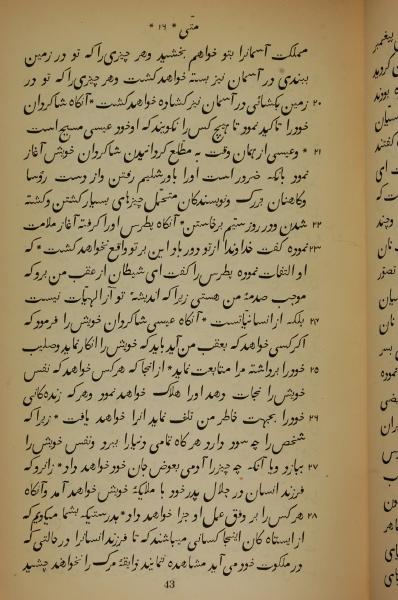 متی * ۱۶ *
مملکت آسمانرا بتو خواهم بخشید وهر چیزی را که تو در زمین
ببندی در آسمان نیز بسته خواهد گشت وهر چیزی را که تو در
زمین بگشائی در آسمان نیز گشاده خواهد گشت * آنگاه شاگردان ۲۰
خود را تاکید نمود تا هیچ کس را نگویند که او خود عیسی مسیح است
* وعیسی از همان وقت به مطلع گردانیدن شاگردان خویش آغاز ۲۱
نمود بانکه ضرور است اورا باورشلیم رفتن واز دست رؤسا
وکاهنان بزرگ ونویسندگان متحمل چیزهای بسیار گشتن وکشته
شدن ودر روز سیم برخاستن * آنگاه بطرس اورا گرفته آغاز ملامت ۲۲
نموده گفت خداوندا از تو دور باد این بر تو واقع نخواهد گشت * که ۲۳
او التفات نموده بطرس را گفت ای شیطان از عقب من برو که
موجب صدمهٔ من هستی زیرا که اندیشهٔ تو از الهیات نیست
بلکه از انسانیاتست * آنگاه عیسی شاگردان خویش را فرمود که ۲۴
اگر کسی خواهد که بعقب من آید باید که خویش را انکار نماید وصلیب
خود را برداشته مرا متابعت نماید * از آنجا که هر کس خواهد که نفس ۲۵
خویش را نجات دهد اورا هلاک خواهد نمود وهر که زنده‌کانی
خود را بجهت خاطر من تلف نماید انرا خواهد یافت * زیرا که ۲۶
شخص را چه سود دارد هر گاه تمامی دنیارا ببرد ونفس خویش را
ببازد ویا آنکه چه چیز را آدمی بعوض جان خود خواهد داد * زانرو که ۲۷
فرزند انسان در جلال پدر خود با ملایکهٔ خویش خواهد آمد وآنگاه
هر کس را بر وفق عمل او جزا خواهد داد * بدرستیکه بشما میگویم که ۲۸
از ایستاده گان اینجا کسانی میباشند که تا فرزند انسانرا در حالتی که
در ملکوت خود می آید مشاهده ننمایند ذایقهٔ مرگ را نخواهند چشید
43